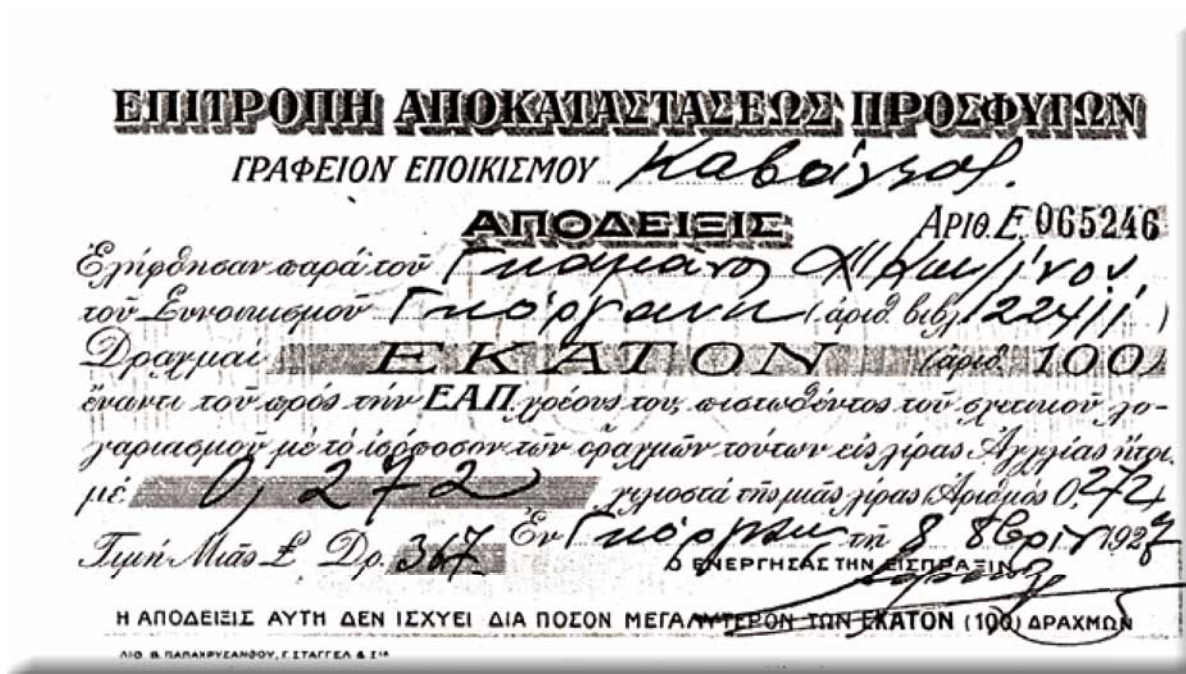 ΕΠΙΤΡΟΠΗ ΑΠΟΚΑΤΑΣΤΑΣΕΩΣ ΠΡΟΣΦΥΓΩΝ
ΓΡΑΦΕΙΟΝ ΕΠΟΙΚΙΣΜΟΥ Καβάλλας.
ΑΠΟΔΕΙΞΙΣ ΑΡΙΘ. Ε. 065246
Ἐλήφθησαν παρὰ τοῦ
τοῦ Συνοικισμοῦ Γκιόργιανη (ἀριθ. βιβλ. 224/11)
Δραχμαὶ ΕΚΑΤΟΝ (ἀριθ. 100)
ἔναντι τοῦ πρὸς τὴν ΕΑΠ. χρέους του, πιστωθέντος τοῦ σχετικοῦ λο-
γαριασμοῦ μὲ τὸ ἰσόποσον τῶν δραχμῶν τούτων εἰς λίρας Ἀγγλίας ἤτοι
μὲ 0,272 χιλιοστὰ τῆς μιᾶς λίρας (Ἀριθμὸς 0,272)
Τιμὴ Μιᾶς £ Δρ. 367 Ἐν τῇ 8 8βρίου 1927
Ο ΕΝΕΡΓΗΣΑΣ ΤΗΝ ΕΙΣΠΡΑΞΙΝ
Η ΑΠΟΔΕΙΞΙΣ ΑΥΤΗ ΔΕΝ ΙΣΧΥΕΙ ΔΙΑ ΠΟΣΟΝ ΜΕΓΑΛΥΤΕΡΟΝ ΤΩΝ ΕΚΑΤΟΝ (100) ΔΡΑΧΜΩΝ
ΛΙΘ. Β. ΠΑΠΑΧΡΥΣΑΝΘΟΥ, Γ. ΣΤΑΓΓΕΛ & ΣΙΑ